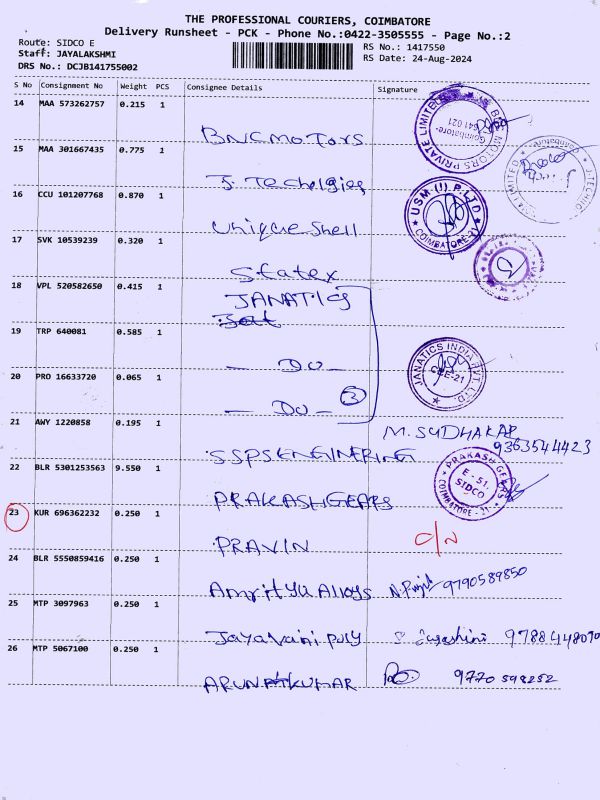 THE PROFESSIONAL COURIERS, COIMBATORE
Delivery Runsheet - PCK - Phone No.:0422-3505555 - Page No.:2
Route: SIDCO E
Staff: JAYALAKSHMI
DRS No.: DCJB141755002
RS No.: 1417550
RS Date: 24-Aug-2024
S No Consignment No Weight PCS Consignee Details Signature
14 MAA 573262757 0.215 1
BNCMOTORS
MOTORS PRIVATE LIMITED
Coimbatore-
641 021
15 MAA 301667435 0.775 1
J. Techolgies
LIMITED
16 CCU 101207768 0.870 1
Unique shell
USM (I) P.LTD
COIMBATORE-21
17 SVK 10539239 0.320 1
Statex
18 VPL 520582650 0.415 1
JANATICS
19 TRP 640081 0.585 1
— DO —
JANATICS INDIA PVT. LTD
CBE-21
20 PRO 16633720 0.065 1
— DO — 3
21 AWY 1220858 0.195 1
SSPSENGINERING
M. SUDHAKAR
9363544423
22 BLR 5301253563 9.550 1
PRAKASHGEARS
PRAKASH GEARS
E - 51,
SIDCO
COIMBATORE - 21
23 KUR 696362232 0.250 1
PRAVIN
C/N
24 BLR 5550859416 0.250 1
Amrityu Alloys
9790589850
25 MTP 3097963 0.250 1
Jayavani poly
26 MTP 5067100 0.250 1
ARUNKUMAR
9770598252